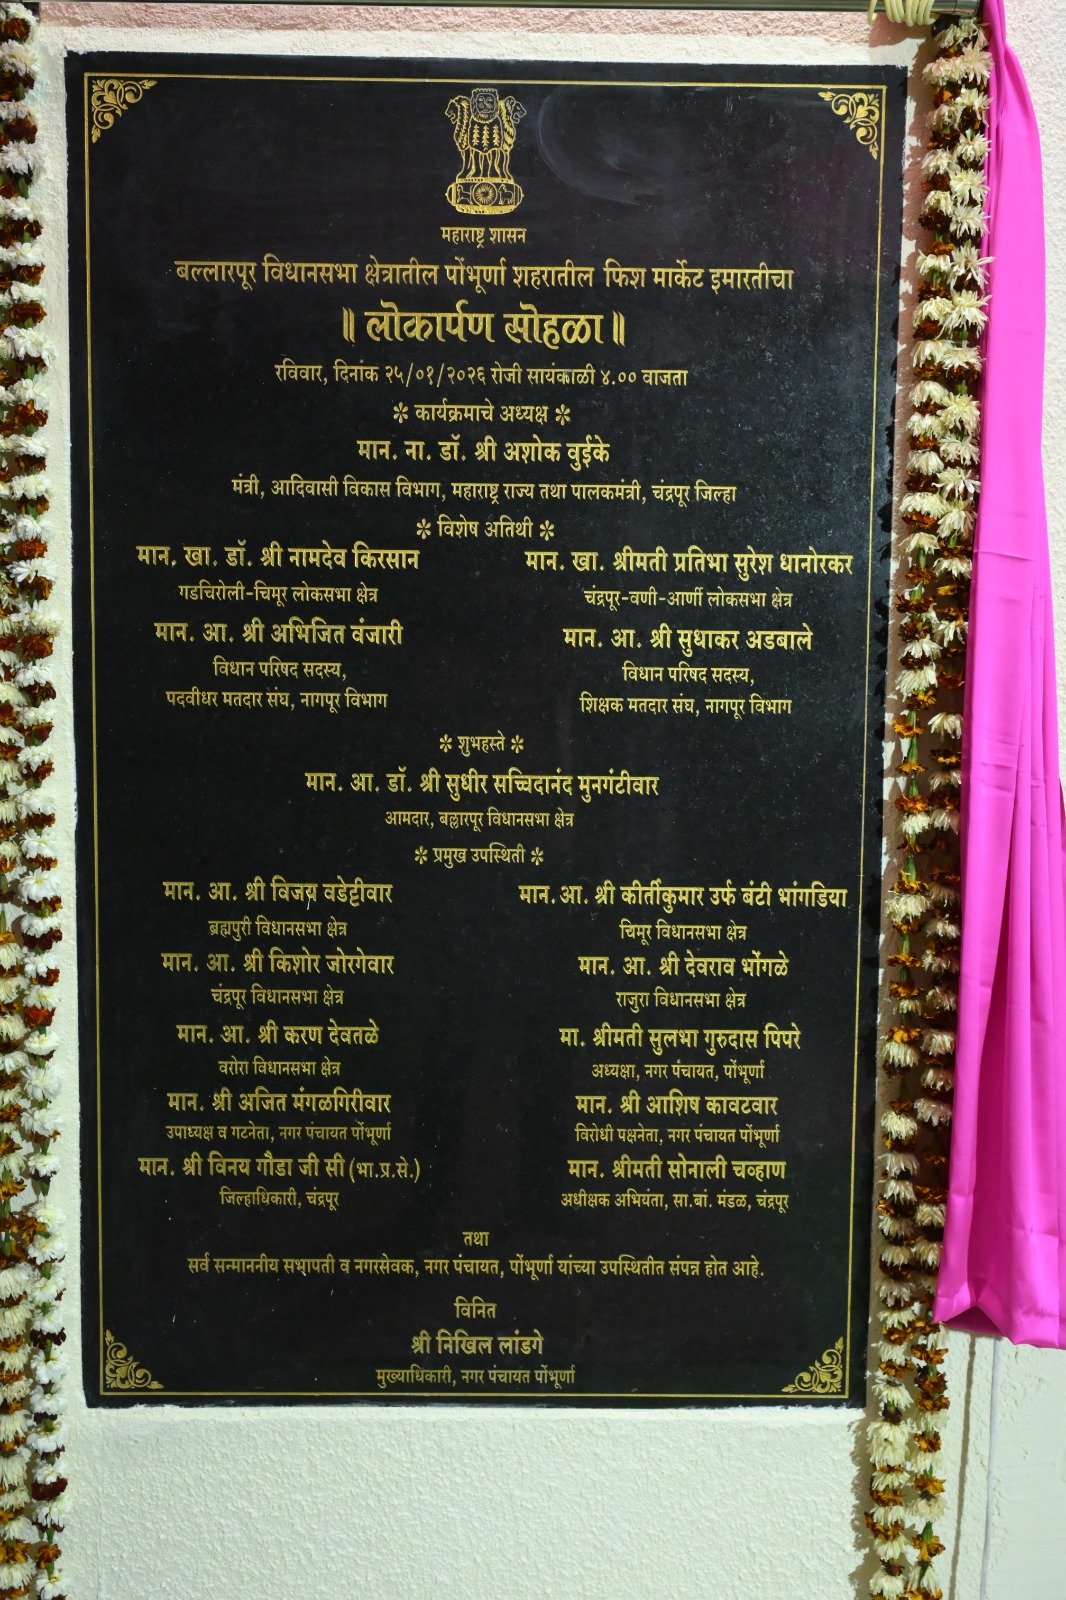 महाराष्ट्र शासन
बल्लारपूर विधानसभा क्षेत्रातील पोंभूर्णा शहरातील फिश मार्केट इमारतीचा
॥ लोकार्पण सोहळा ॥
रविवार, दिनांक २५/०१/२०२६ रोजी सायंकाळी ४.०० वाजता
कार्यक्रमाचे अध्यक्ष
मान. ना. डॉ. श्री अशोक वुईके
मंत्री, आदिवासी विकास विभाग, महाराष्ट्र राज्य तथा पालकमंत्री, चंद्रपूर जिल्हा
विशेष अतिथी
मान. खा. डॉ. श्री नामदेव किरसान
गडचिरोली-चिमूर लोकसभा क्षेत्र
मान. खा. श्रीमती प्रतिभा सुरेश धानोरकर
चंद्रपूर-वणी-आर्णी लोकसभा क्षेत्र
मान. आ. श्री अभिजित वंजारी
विधान परिषद सदस्य,
पदवीधर मतदार संघ, नागपूर विभाग
मान. आ. श्री सुधाकर अडबाले
विधान परिषद सदस्य,
शिक्षक मतदार संघ, नागपूर विभाग
शुभहस्ते
मान. आ. डॉ. श्री सुधीर सच्चिदानंद मुनगंटीवार
आमदार, बल्लारपूर विधानसभा क्षेत्र
प्रमुख उपस्थिती
मान. आ. श्री विजय वडेट्टीवार
ब्रह्मपुरी विधानसभा क्षेत्र
मान. आ. श्री कीर्तीकुमार उर्फ बंटी भांगडिया
चिमूर विधानसभा क्षेत्र
मान. आ. श्री किशोर जोरगेवार
चंद्रपूर विधानसभा क्षेत्र
मान. आ. श्री देवराव भोंगळे
राजुरा विधानसभा क्षेत्र
मान. आ. श्री करण देवतळे
वरोरा विधानसभा क्षेत्र
मा. श्रीमती सुलभा गुरुदास पिपरे
अध्यक्षा, नगर पंचायत, पोंभूर्णा
मान. श्री अजित मंगळगिरीवार
उपाध्यक्ष व गटनेता, नगर पंचायत पोंभूर्णा
मान. श्री आशिष कावटवार
विरोधी पक्षनेता, नगर पंचायत पोंभूर्णा
मान. श्री विनय गौडा जी सी (भा.प्र.से.)
जिल्हाधिकारी, चंद्रपूर
मान. श्रीमती सोनाली चव्हाण
अधीक्षक अभियंता, सा.बां. मंडळ, चंद्रपूर
तथा
सर्व सन्माननीय सभापती व नगरसेवक, नगर पंचायत, पोंभूर्णा यांच्या उपस्थितीत संपन्न होत आहे.
विनित
श्री निखिल लांडगे
मुख्याधिकारी, नगर पंचायत पोंभूर्णा